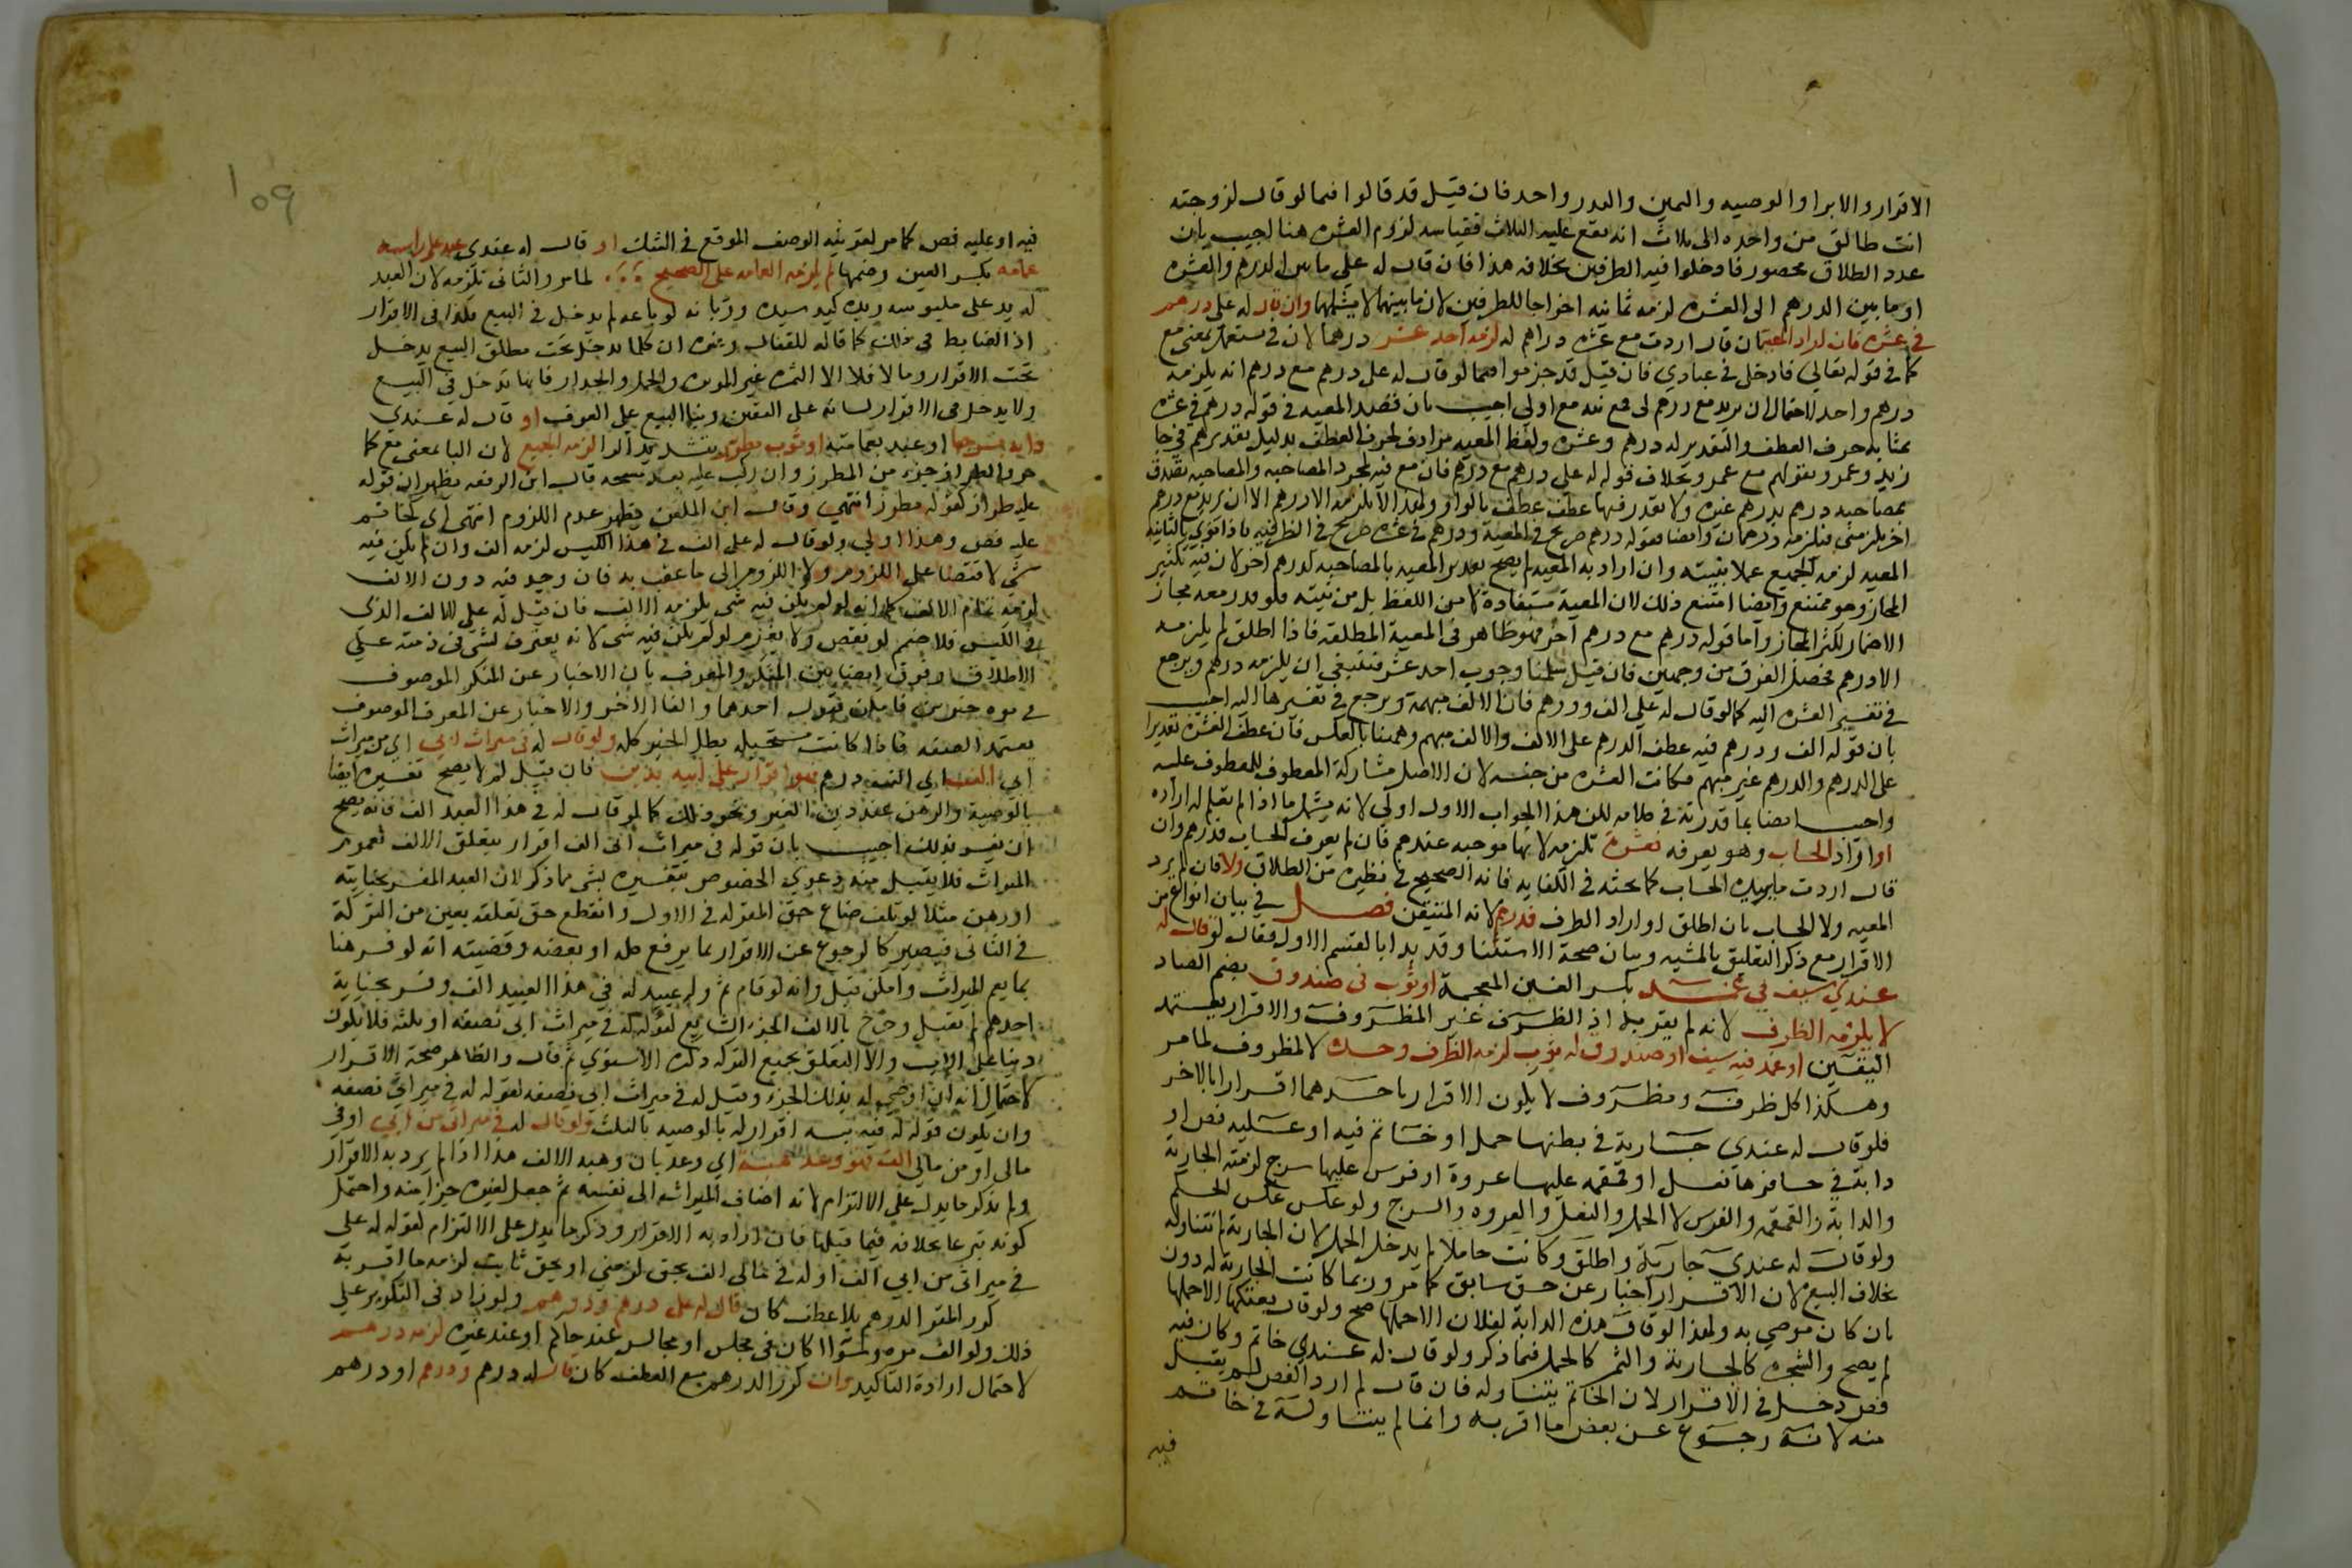 الاقرار والابرا والوصيه واليمين والندر واحد فان قيل قد قالوا فيما لو قال لزوجته
انت طالق من واحده الى ثلاث انه يقع عليه الثلاث فقياسه لزوم العشره هنا اجيب بان
عدد الطلاق محصور فادخلوا فيه الطرفين بخلافه هذا فان قال له علي ما بين الدرهم والعشره
او ما بين الدرهم الى العشره لزمه ثمانيه اخراجا للطرفين لان ما بينهما لا يشملهما وان قال له علي درهم
في عشره فان اراد المعيه بان قال اردت مع عشره دراهم له لزمه احد عشر درهما لان في تستعمل بمعنى مع
كما في قوله تعالى فادخلي في عبادي فان قيل قد جزموا فيما لو قال له على درهم مع درهم انه يلزمه
درهم واحد لاحتمال ان يريد مع درهم لي فمع نيه مع اولى اجيب بان قصد المعيه في قوله درهم في عشره
بمثابه حرف العطف والتقدير له درهم وعشره ولفظ المعيه مرادف لحرف العطف بدليل تقديرهم في جا
زيد وعمرو بقولهم مع عمرو بخلاف قوله له علي درهم مع درهم فان مع فيه لمجرد المصاحبه والمصاحبه تصدق
بمصاحبه درهم بدرهم غيره ولا يقدر فيها عطف بالواو ولهذا لا يلزمه الا درهم الا ان يريد مع درهم
اخر يلزمني فيلزمه درهمان وايضا فقوله درهم صريح في المعية ودرهم في عشره صريح في الظرفيه فاذا نوى بالثانيه
المعيه لزمه الجميع عملا بنيته وان اراد به المعيه لم يصح تقدير المعيه بالمصاحبه لدرهم اخر لان فيه تكثير
المجاز وهو ممتنع وايضا امتنع ذلك لان المعية مستفادة لا من اللفظ بل من نيته فلو قدر معه مجاز
الاضمار لكثر المجاز واما قوله درهم مع درهم اخر فهو ظاهر في المعية المطلقه فاذا اطلق لم يلزمه
الا درهم فحصل الفرق من وجهين فان قيل سلمنا وجوب احد عشر فينبغي ان يلزمه درهم ويرجع
في تفسير العشره اليه كما لو قال له على الف ودرهم فان الالف مبهمة ويرجع في تفسيرها اليه اجيب
بان قوله الف ودرهم فيه عطف الدرهم على الالف والالف مبهم وهنا بالعكس فان عطف العشرة تقديرا
على الدرهم والدرهم غير مبهم فكانت العشره من جنسه لان الاصل مشاركة المعطوف للمعطوف عليه
واجيب ايضا بما قدرته في كلامه لكن هذا الجواب الاول اولى لانه يشمل ما اذا لم نعلم له اراده
او اراد الحساب وهو يعرفه فعشرة تلزمه لانها موجبه عندهم فان لم يعرف الحساب فدرهم وان
قال اردت ما يريده الحساب كما بحثه في الكفايه فانه الصحيح في نظيره من الطلاق والا فان لم يرد
المعيه ولا الحساب بان اطلق او اراد الظرف فدرهم لانه المتيقن فصل في بيان انواع من
الاقرار مع ذكر التعليق بالمشيه وبيان صحة الاستثنا وقد بدا بالقسم الاول فقال لو قال له
عندي سيف في غمد بكسر الغين المعجمة او ثوب في صندوق بضم الصاد
لا يلزمه الظرف لانه لم يقر به اذ الظرف غير المظروف والاقرار يعتمد
اليقين او غمد فيه سيف او صندوق له ثوب لزمه الظرف وحده لا المظروف لما مر
وهكذا كل ظرف ومظروف لا يكون الاقرار باحدهما اقرارا بالاخر
فلو قال له عندي جارية في بطنها حمل او خاتم فيه او عليه فص او
دابة في حافرها نعل او قمقمه عليها عروة او فرس عليها سرج لزمته الجارية
والدابة والقمقمه والفرس لا الحمل والنعل والعروه والسرج ولو عكس عكس الحكم
ولو قال له عندي جارية واطلق وكانت حاملا لم يدخل الحمل لان الجارية لم تتناوله
بخلاف البيع لان الاقرار اخبار عن حق سابق كما مر وربما كانت الجارية له دون
بان كان موصى به ولهذا لو قال هذه الدابة لفلان الا حملها صح ولو قال بعتكها الا حملها
لم يصح والشجره كالجارية والثمر كالحمل فيما ذكر ولو قال له عندي خاتم وكان فيه
فص دخل في الاقرار لان الخاتم يتناوله فان قال لم ارد الفص لم يقبل
منه لانه رجوع عن بعض ما اقر به وانما لم يتناوله في خاتم
فيه
109
فيه او عليه فص كما مر لقرينه الوصف الموقع في الشك او قال له عندي عبد على راسه
عمامه بكسر العين وضمها لم يلزمه العمامه على الصحيح لما مر والثاني تلزمه لان العبد
له يد على ملبوسه ويده كيد سيده ورد بانه لو باعه لم يدخل في البيع فكذا في الاقرار
اذ الضابط في ذلك كما قاله القفال وغيره ان كلما يدخل تحت مطلق البيع يدخل
تحت الاقرار وما لا فلا الا الثمره غير الموبره والحمل والجدار فانها تدخل في البيع
ولا يدخل في الاقرار لبنائه على اليقين وبنا البيع على العرف او قال له عندي
دابه بسرجها او عبد بعمامته او ثوب مطرز بتشديد الرا لزمه الجميع لان البا بمعنى مع كما
مر والطراز جزء من المطرز وان ركب عليه بعد نسجه قال ابن الرفعه يظهر ان قوله
عليه طراز كقوله مطرز انتهى وقال ابن الملقن يظهر عدم اللزوم انتهى اي كخاتم
عليه فص وهذا اولى ولو قال له على الف في هذا الكيس لزمه الف وان لم يكن فيه
شي لاقتضا على اللزوم ولا اللزوم الى ما عقب به فان وجد فيه دون الالف
لزمه تمام الالف كما انه لو لم يكن فيه شي يلزمه الالف فان قال له على الالف الذي
في الكيس فلا ضم لو نقص ولا يغرم لو لم يكن فيه شي لانه لم يعترف بشي في ذمته على
الاطلاق وفرق ايضا بين المنكر والمعرف بان الاخبار عن المنكر الموصوف
في قوه خبرين فامكن قبول احدهما والغا الاخر والاخبار عن المعرف الموصوف
يعتمد الصفه فاذا كانت مستحيله بطل الخبر كله ولو قال له في ميراث ابي اي من ميراث
ابي الف اي الف درهم فهو اقرار على ابيه بدين فان قيل لم لا يصح تفسيره ايضا
بالوصية والرهن عند دين الغير ونحو ذلك كما لو قال له في هذا العبد الف فانه يصح
ان يفسر بذلك اجيب بان قوله في ميراث ابي الف اقرار بتعلق الالف بعموم
الميراث فلا يقبل منه دعوى الخصوص بتفسيره بشي مما ذكر لان العبد المفسر بجنايته
او رهن مثلا لو تلف ضاع حق المقر له في الاول وانقطع حق تعلقه بعين من التركة
في الثاني فيصير كالرجوع عن الاقرار بما يرفع كله او بعضه وقضيته انه لو فسر هنا
بما يعم الميراث وامكن قبل وانه لو قام ثم وله عبيد له في هذا العبيد الف وفسر بجناية
احدهم لم يقبل وخرج بالالف الجزء الشايع كقوله له في ميراث ابي نصفه او ثلثه فلا يكون
دينا على الاب والا لتعلق بجميع التركه ذكره الاسنوي ثم قال والظاهر صحة الاقرار
لاحتمال انه اوصى له بذلك الجزء وقبل له في ميراث ابي نصفه كقوله له في ميراثي نصفه
وان يكون قوله له فيه ثلثه اقرار له بالوصيه بالثلث ولو قال له في ميراثي من ابي او في
مالي او من مالي الف فهو وعد هبة اي وعد بان وهبه الالف هذا اذا لم يرد به الاقرار
ولم يذكر ما يدل على الالتزام لانه اضاف الميراث الى نفسه ثم جعل لغيره جزا منه واحتمل
كونه تبرعا بخلافه فيما قبلها فان اراد به الاقرار وذكر ما يدل على الالتزام كقوله له على
في ميراثي من ابي الف او له في مالي الف بحق لزمني او بحق ثابت لزمه ما اقر به
كرر المقر الدرهم بلا عطف كان قال له على درهم درهم ولو زاد في التكرير على
ذلك ولو الف مره ولو سوا كان في مجلس او مجالس عند حاكم او عند غيره لزمه درهم
لاحتمال ارادة التاكيد وان كرر الدرهم مع العطف كان قال له درهم ودرهم او درهم